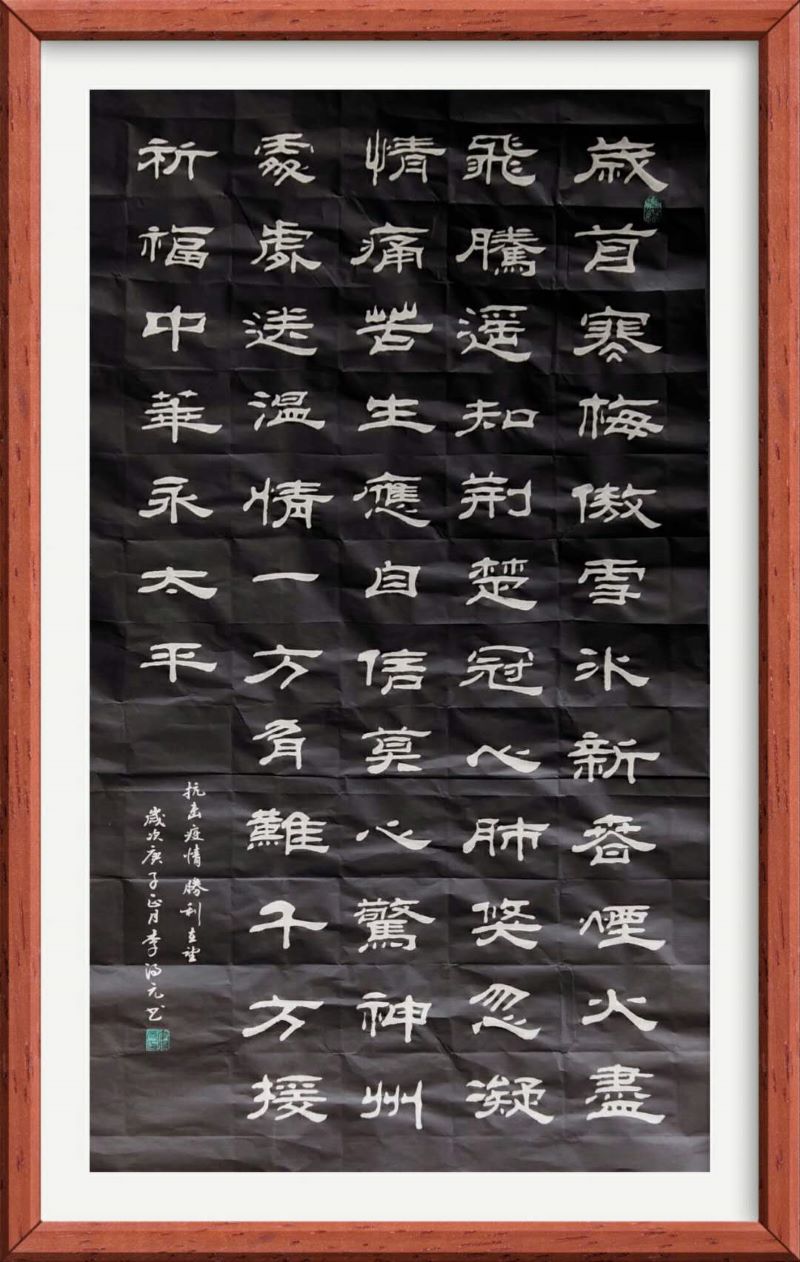 歲首寒梅傲雪冰新春煙火盡
飛騰遥知荆楚冠心肺倏忽凝
情痛苦生應自信莫心驚神州
處處送温情一方有難千方援
祈福中華永太平
抗击疫情勝利在望
歲次庚子正月李元书